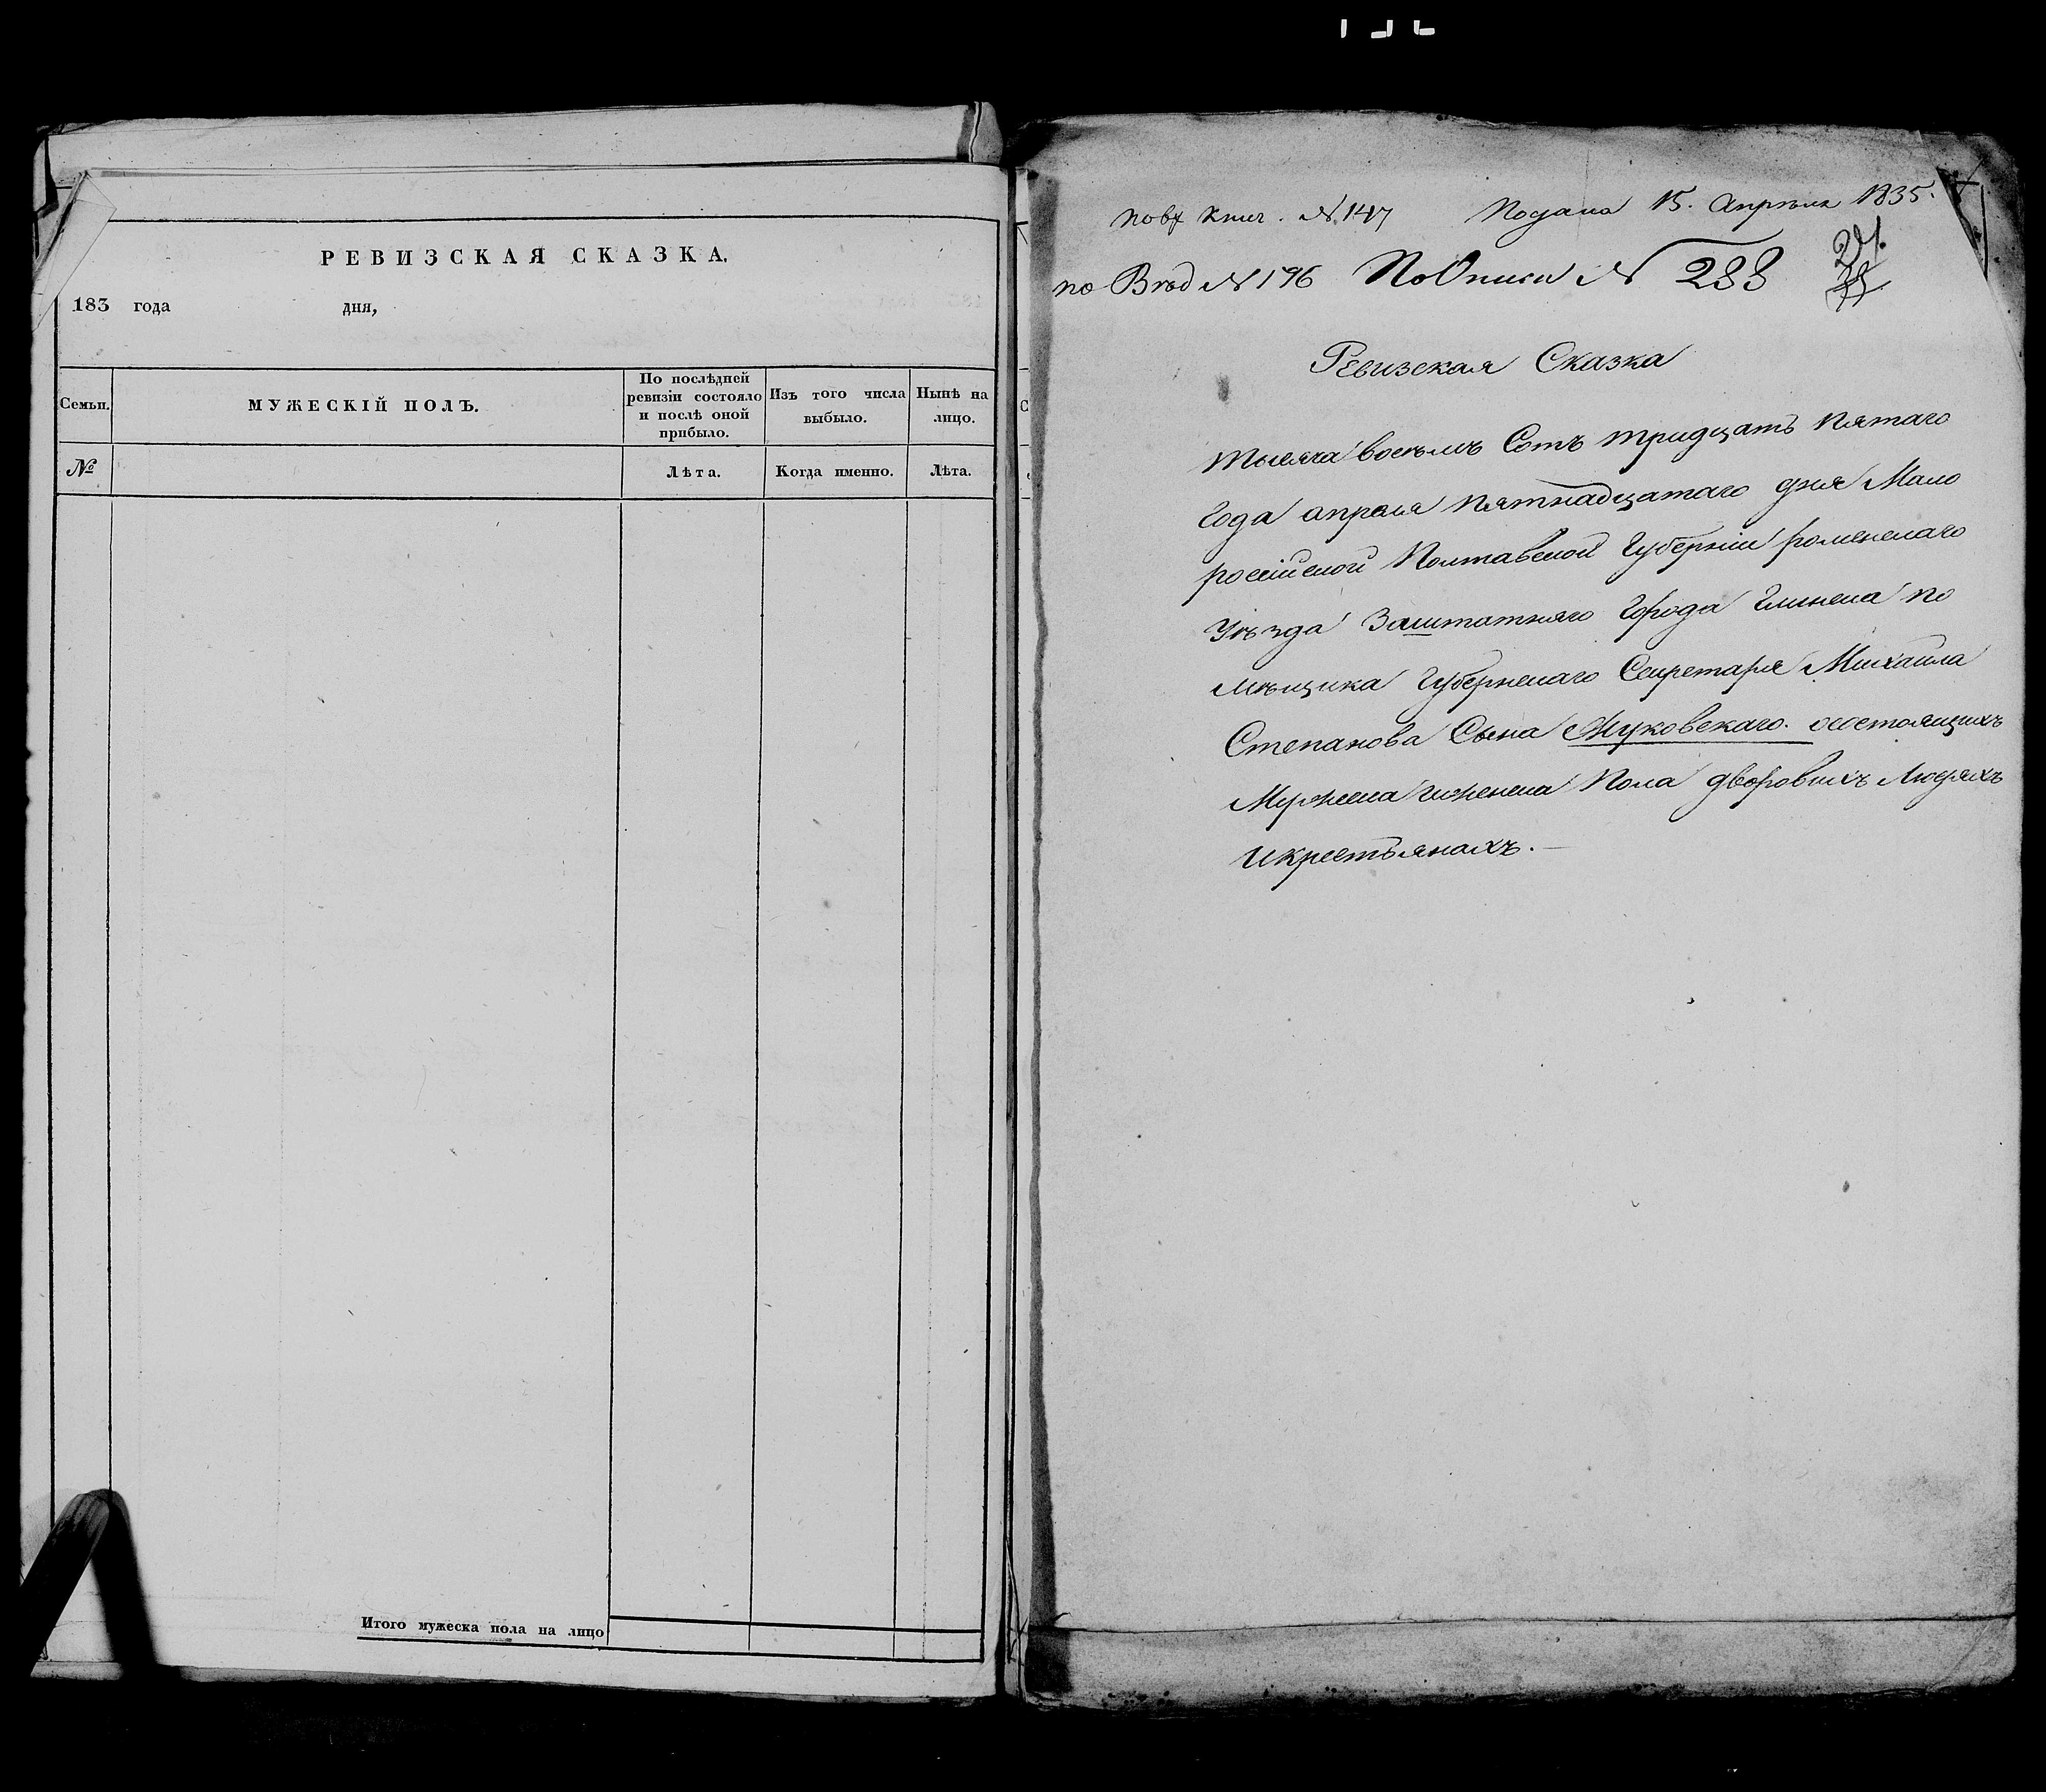 РЕВИЗСКАЯ СКАЗКА.
183 года дня,
Семьи.
МУЖЕСКІЙ ПОЛЪ.
По послѣдней
ревизіи состояло
и послѣ оной
прибыло.
Изъ того числа
выбыло.
Нынѣ на
лицо.
№
Лѣта.
Когда именно.
Лѣта.
Итого мужеска пола на лицо
по вх книг. №147 Подана 15. Апрѣля 1835.
по Вѣд №196 По Описи № 233
Ревизская Сказка
тысяча восемъ Сотъ тридцать пятаго
Года апреля пятнадцатаго дня Мало
россійской Полтавской Губерніи роменскаго
Уѣзда Заштатнаго Города Глинска по
мѣщика Губернскаго Секретаря Михаила
Степанова Сына Жуковскаго. осостоящихъ
Мужеска иженска Пола дворовыхъ Людяхъ
Икрестьянахъ.—